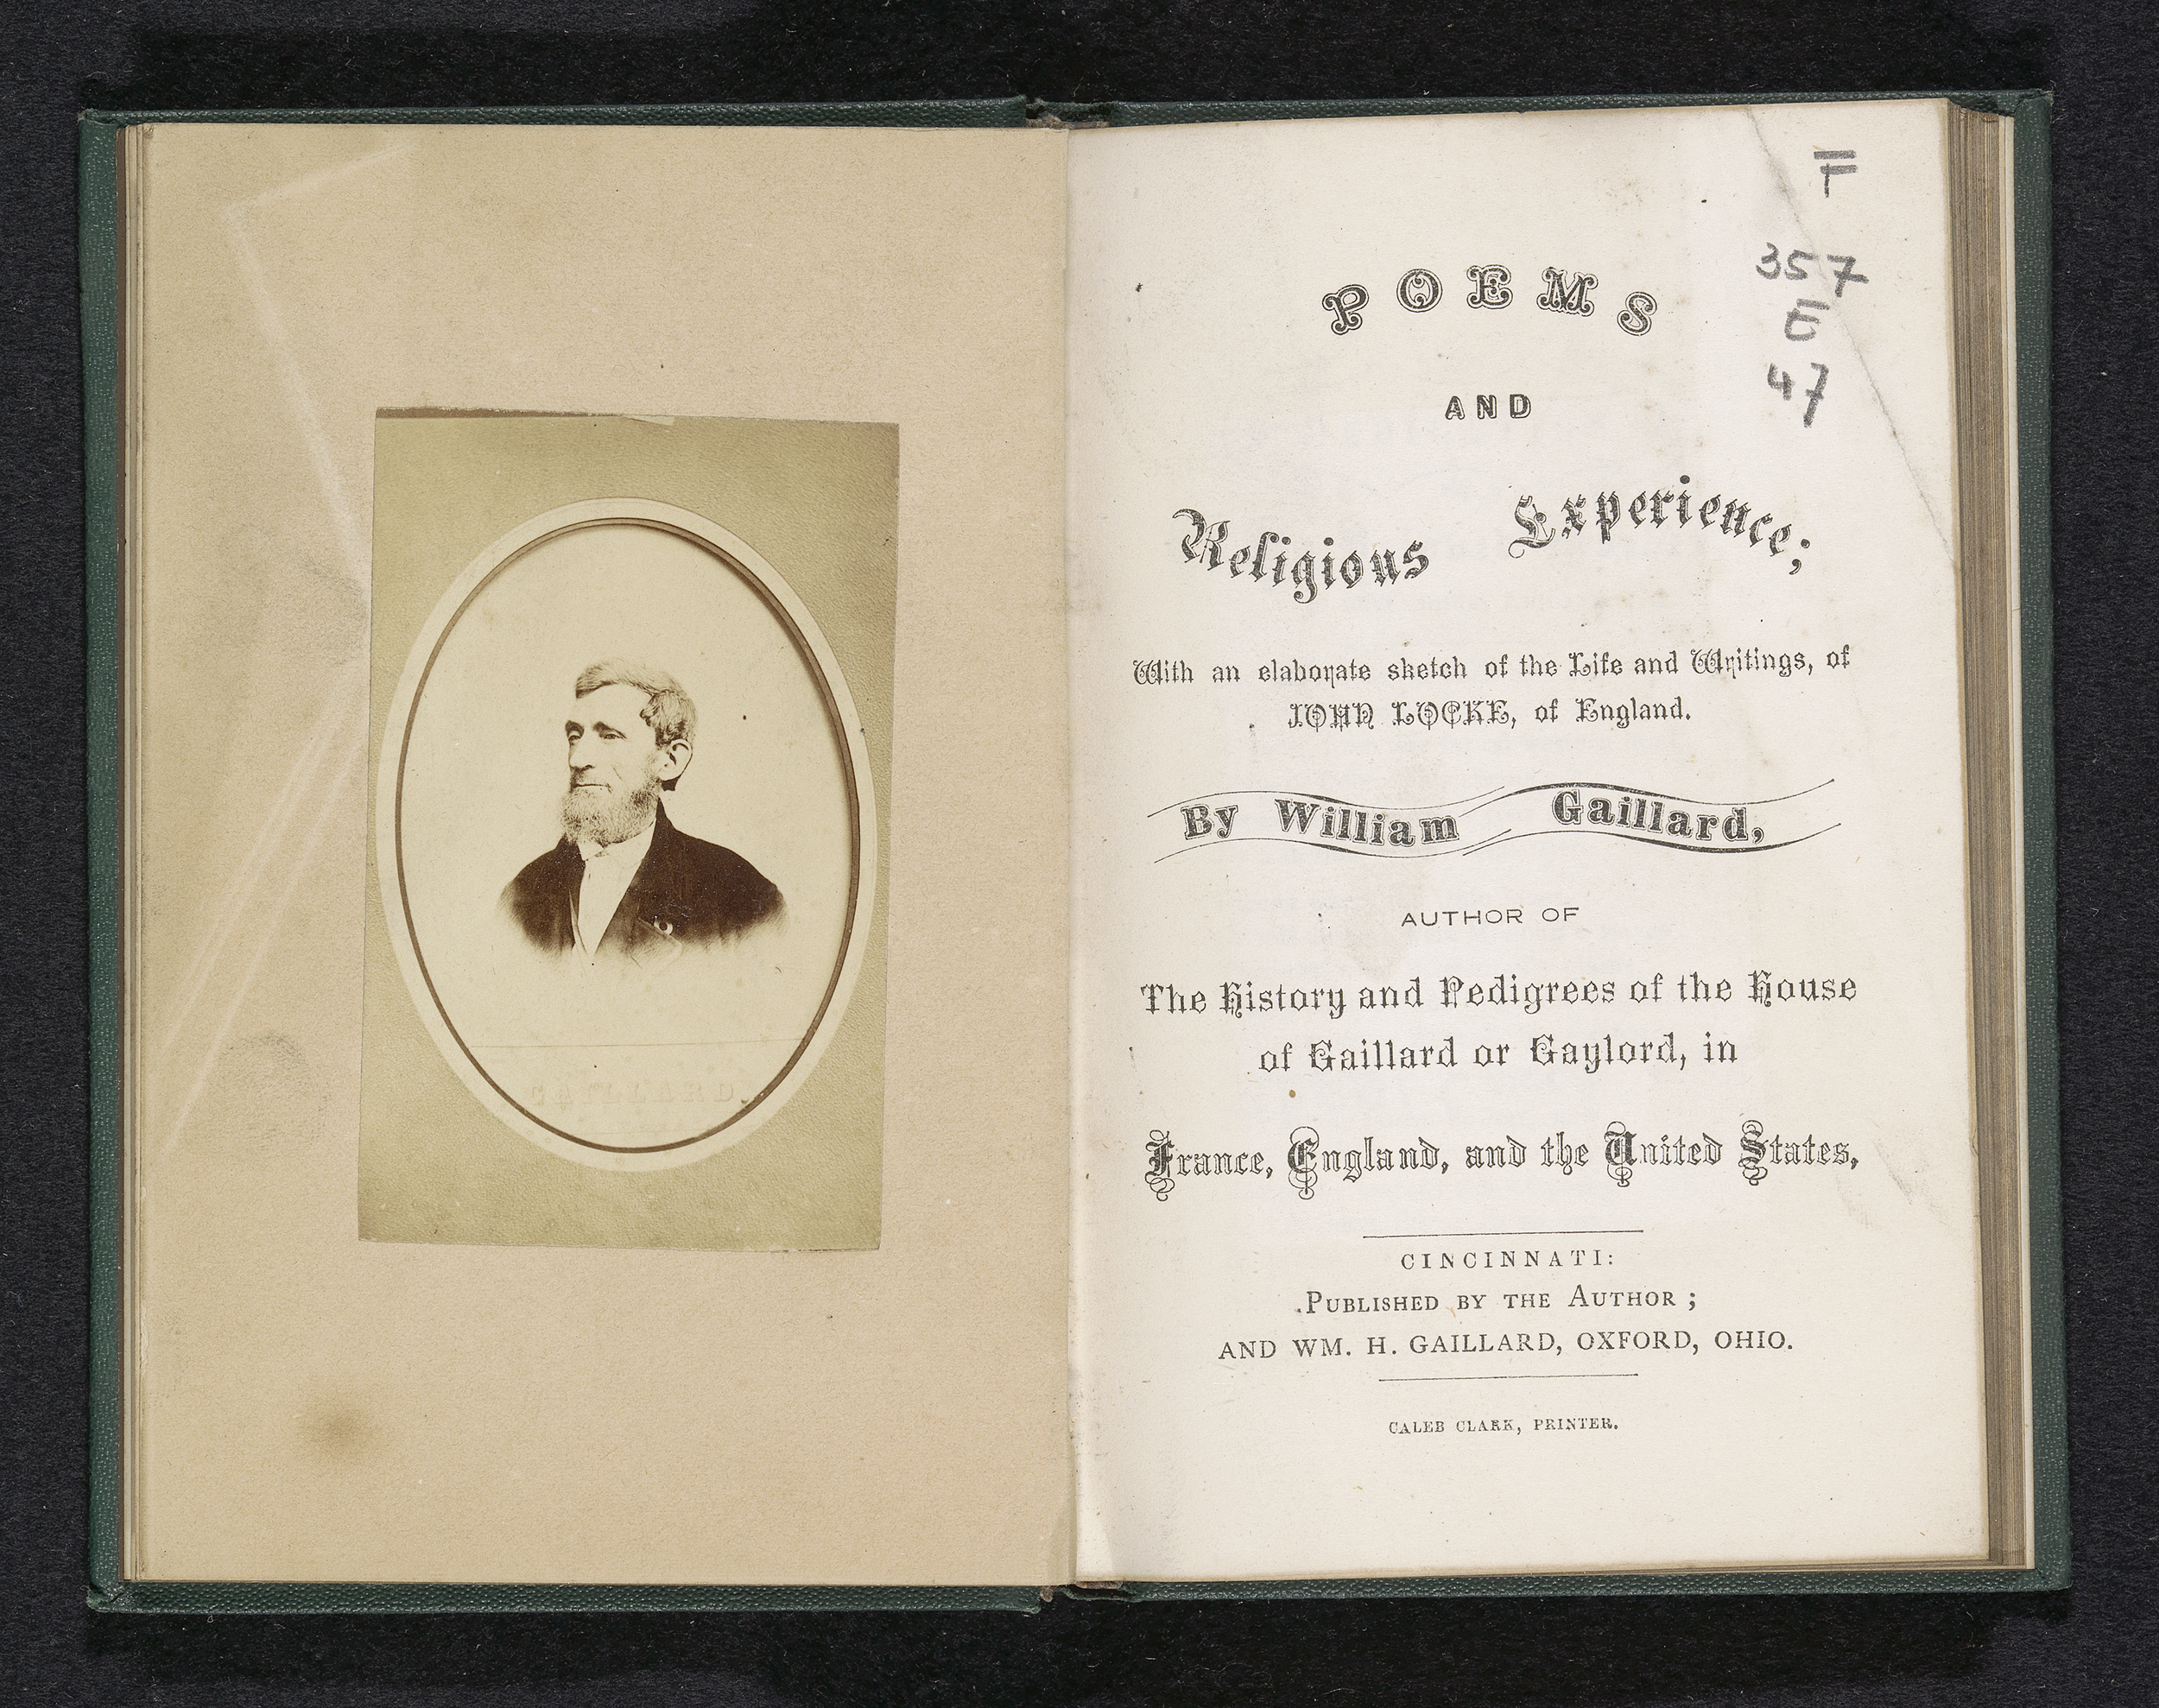 GAILLARD.
F
357
E
47
POEMS
AND
Religious Experience;
With an elaborate sketch of the Life and Writings, of
JOHN LOCKE, of England.
By William Gaillard,
AUTHOR OF
The History and Pedigrees of the House
of Gaillard or Gaylord, in
France, England, and the United States,
CINCINNATI:
PUBLISHED BY THE AUTHOR;
AND WM. H. GAILLARD, OXFORD, OHIO.
CALEB CLARK, PRINTER.